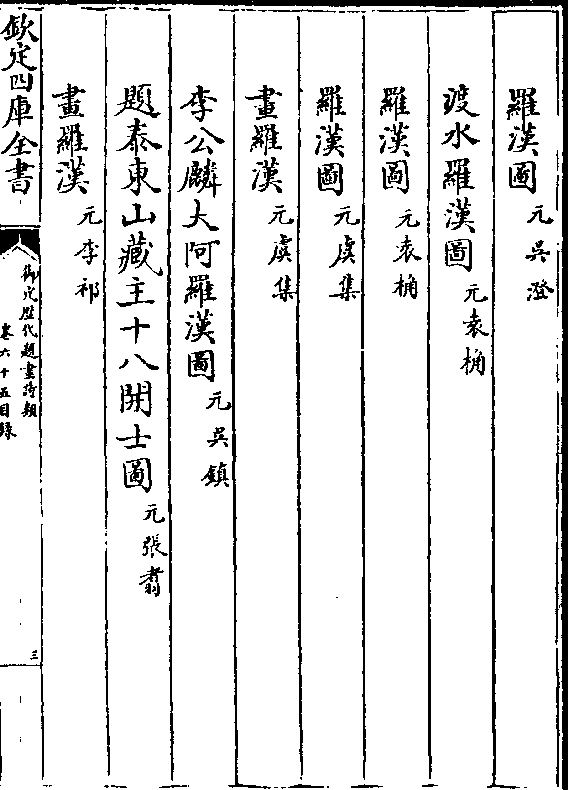 羅漢圖 元吳澄
渡水羅漢圖 元袁桷
羅漢圖 元袁桷
羅漢圖 元虞集
畫羅漢 元虞集
李公麟大阿羅漢圖 元吳鎮
題泰東山藏主十八開士圖 元張翥
畫羅漢 元李祁
欽定四庫全書
御定歷代題畫詩類
卷六十五目録
三